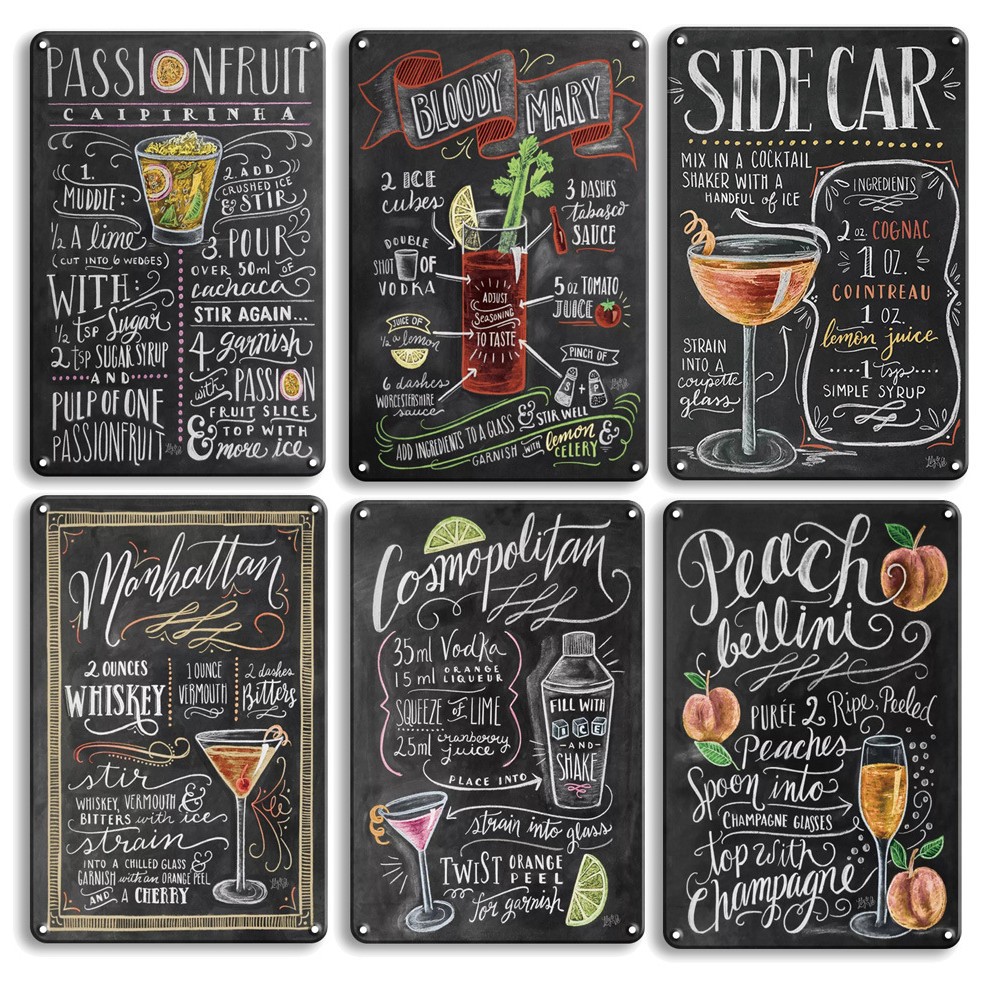 PASSIONFRUIT
CAIPIRINHA
1.
MUDDLE:
½ A lime
(CUT INTO 6 WEDGES)
WITH:
½ tsp Sugar
2 tsp SUGAR SYRUP
AND
PULP OF ONE
PASSIONFRUIT
2. ADD
CRUSHED ICE
& STIR
3. POUR
OVER 50ml OF
cachaca
STIR AGAIN...
4 garnish
with PASSION
FRUIT SLICE
& TOP WITH
more ice
BLOODY MARY
2 ICE
cubes
DOUBLE
SHOT OF
VODKA
JUICE OF
½ a lemon
6 dashes
WORCESTERSHIRE
sauce
3 DASHES
tabasco
SAUCE
5 oz TOMATO
JUICE
PINCH OF
S + P
ADJUST
SEASONING
TO TASTE
ADD INGREDIENTS TO A GLASS & STIR WELL
GARNISH WITH lemon &
CELERY
SIDE CAR
MIX IN A COCKTAIL
SHAKER WITH A
HANDFUL of ICE
INGREDIENTS
2 oz. COGNAC
1 OZ.
COINTREAU
1 OZ.
lemon juice
1 tsp
SIMPLE SYRUP
STRAIN
INTO A
coupette
glass
Manhattan
2 OUNCES
WHISKEY
1 OUNCE
VERMOUTH
2 dashes
Bitters
stir
WHISKEY, VERMOUTH &
BITTERS with ice
strain
INTO A CHILLED GLASS &
GARNISH with an ORANGE PEEL
AND A CHERRY
Cosmopolitan
35ml Vodka
15ml ORANGE
LIQUEUR
SQUEEZE OF LIME
25ml cranberry
juice
PLACE INTO
FILL WITH
ICE
-AND-
SHAKE
strain into glass
TWIST ORANGE
PEEL
for garnish
Peach
bellini
PURÉE 2 Ripe, Peeled
Peaches
Spoon into
CHAMPAGNE GLASSES
top with
Champagne